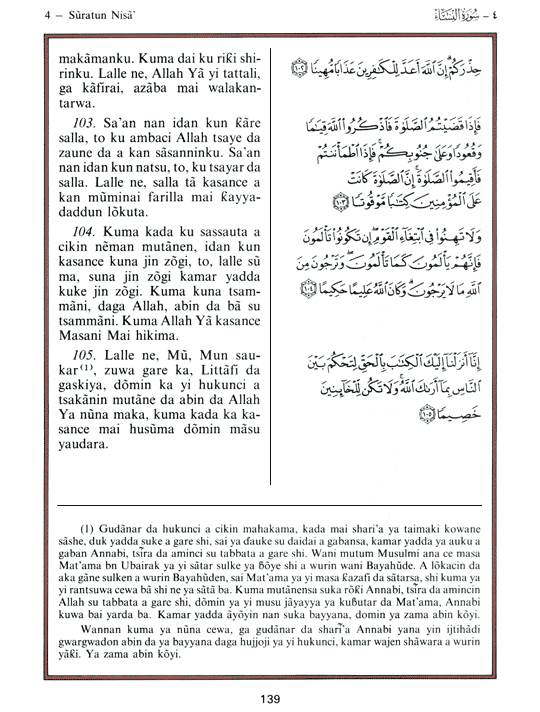 4 — Sūratun Nisā'
٤ – سُورَةُ النِّسَاء
makāmanku. Kuma dai ku riƙi shi-
rinku. Lalle ne, Allah Yā yi tattali,
ga kāfirai, azāba mai walakan-
tarwa.
103. Sa'an nan idan kun ƙāre
salla, to ku ambaci Allah tsaye da
zaune da a kan sāsanninku. Sa'an
nan idan kun natsu, to, ku tsayar da
salla. Lalle ne, salla tā kasance a
kan mūminai farilla mai ƙayya-
daddun lōkuta.
104. Kuma kada ku sassauta a
cikin nēman mutānen, idan kun
kasance kuna jin zōgi, to, lalle sū
ma, suna jin zōgi kamar yadda
kuke jin zōgi. Kuma kuna tsam-
māni, daga Allah, abin da bā su
tsammāni. Kuma Allah Yā kasance
Masani Mai hikima.
105. Lalle ne, Mū, Mun sau-
kar(1), zuwa gare ka, Littāfi da
gaskiya, dōmin ka yi hukunci a
tsakānin mutāne da abin da Allah
Ya nūna maka, kuma kada ka ka-
sance mai husūma dōmin māsu
yaudara.
حِذْرَكُمْ إِنَّ اللَّهَ أَعَدَّ لِلْكَافِرِينَ عَذَابًا مُّهِينًا ١٠٢
فَإِذَا قَضَيْتُمُ الصَّلَوٰةَ فَاذْكُرُوا اللَّهَ قِيَامًا
وَقُعُودًا وَعَلَىٰ جُنُوبِكُمْ فَإِذَا اطْمَأْنَنتُمْ
فَأَقِيمُوا الصَّلَوٰةَ إِنَّ الصَّلَوٰةَ كَانَتْ
عَلَى الْمُؤْمِنِينَ كِتَابًا مَّوْقُوتًا ١٠٣
وَلَا تَهِنُوا فِي ابْتِغَاءِ الْقَوْمِ إِن تَكُونُوا تَأْلَمُونَ
فَإِنَّهُمْ يَأْلَمُونَ كَمَا تَأْلَمُونَ وَتَرْجُونَ مِنَ
اللَّهِ مَا لَا يَرْجُونَ وَكَانَ اللَّهُ عَلِيمًا حَكِيمًا ١٠٤
إِنَّا أَنزَلْنَا إِلَيْكَ الْكِتَابَ بِالْحَقِّ لِتَحْكُمَ بَيْنَ
النَّاسِ بِمَا أَرَىٰكَ اللَّهُ وَلَا تَكُن لِّلْخَائِنِينَ
خَصِيمًا ١٠٥
(1) Gudānar da hukunci a cikin mahakama, kada mai shari'a ya taimaki kowane
sāshe, duk yadda suke a gare shi, sai ya ɗauke su daidai a gabansa, kamar yadda ya auku a
gaban Annabi, tsīra da aminci su tabbata a gare shi. Wani mutum Musulmi ana ce masa
Mat'ama bn Ubairak ya yi sātar sulke ya ɓōye shi a wurin wani Bayahūde. A lōkacin da
aka gāne sulken a wurin Bayahūden, sai Mat'ama ya yi masa ƙazafi da sātarsa, shi kuma ya
yi rantsuwa cewa bā shi ne ya sātā ba. Kuma mutānensa suka rōƙi Annabi, tsīra da amincin
Allah su tabbata a gare shi, dōmin ya yi musu jāyayya ya kuɓutar da Mat'ama, Annabi
kuwa bai yarda ba. Kamar yadda āyōyin nan suka bayyana, domin ya zama abin kōyi.
Wannan kuma ya nūna cewa, ga gudānar da sharī'a Annabi yana yin ijtihādi
gwargwadon abin da ya bayyana daga hujjoji ya yi hukunci, kamar wajen shāwara a wurin
yāƙi. Ya zama abin kōyi.
139